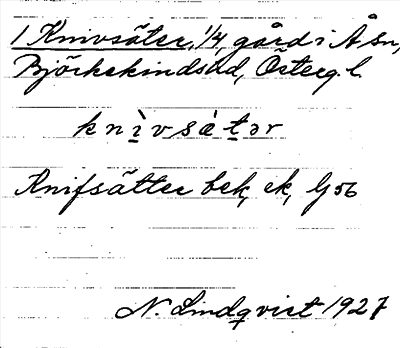 1 Knivsäter, 1/4, gård i Å sn,
Björkekinds hd, Österg. l.
knìvsὰtər
Knifsätter bek, ek, G 56
N. Lindqvist 1927